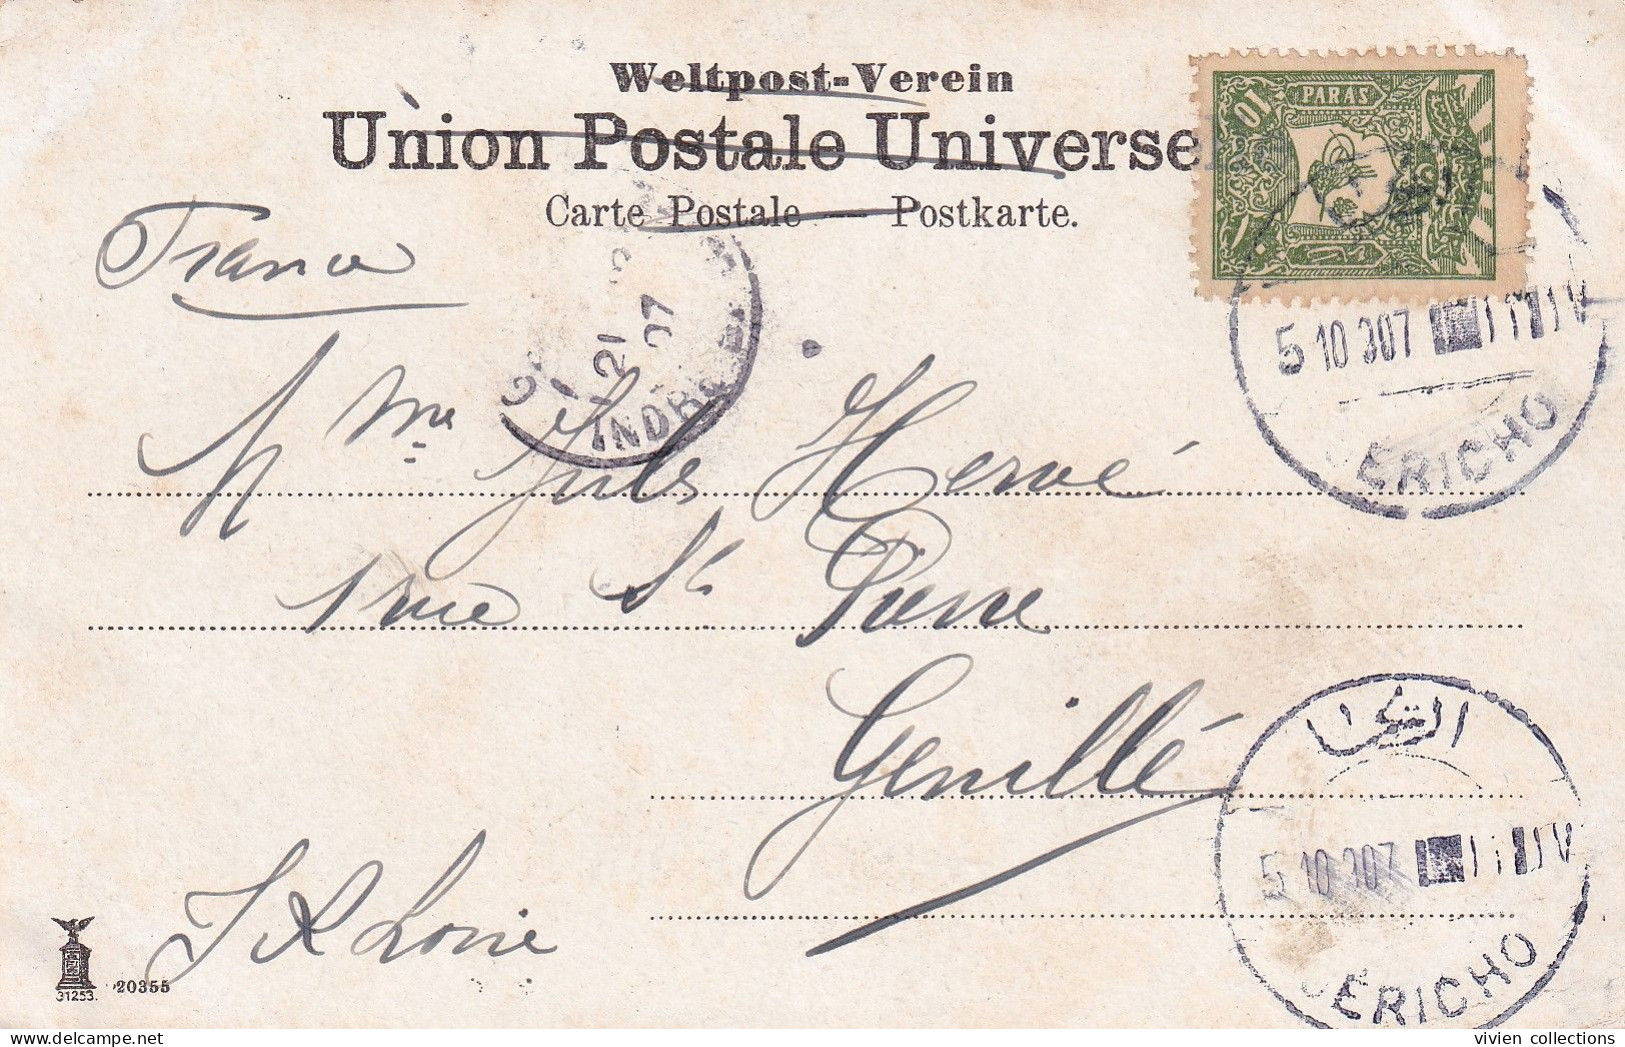 Weltpost-Verein
Union Postale Universe
Carte Postale — Postkarte.
10
PARAS
France
21
07
INDRE
5 10 307
ERICHO
Mme Jules Hervé
1 rue St Pierre
Genillé
I & Loire
5 10 307
JERICHO
31253.
20355
vivien collections